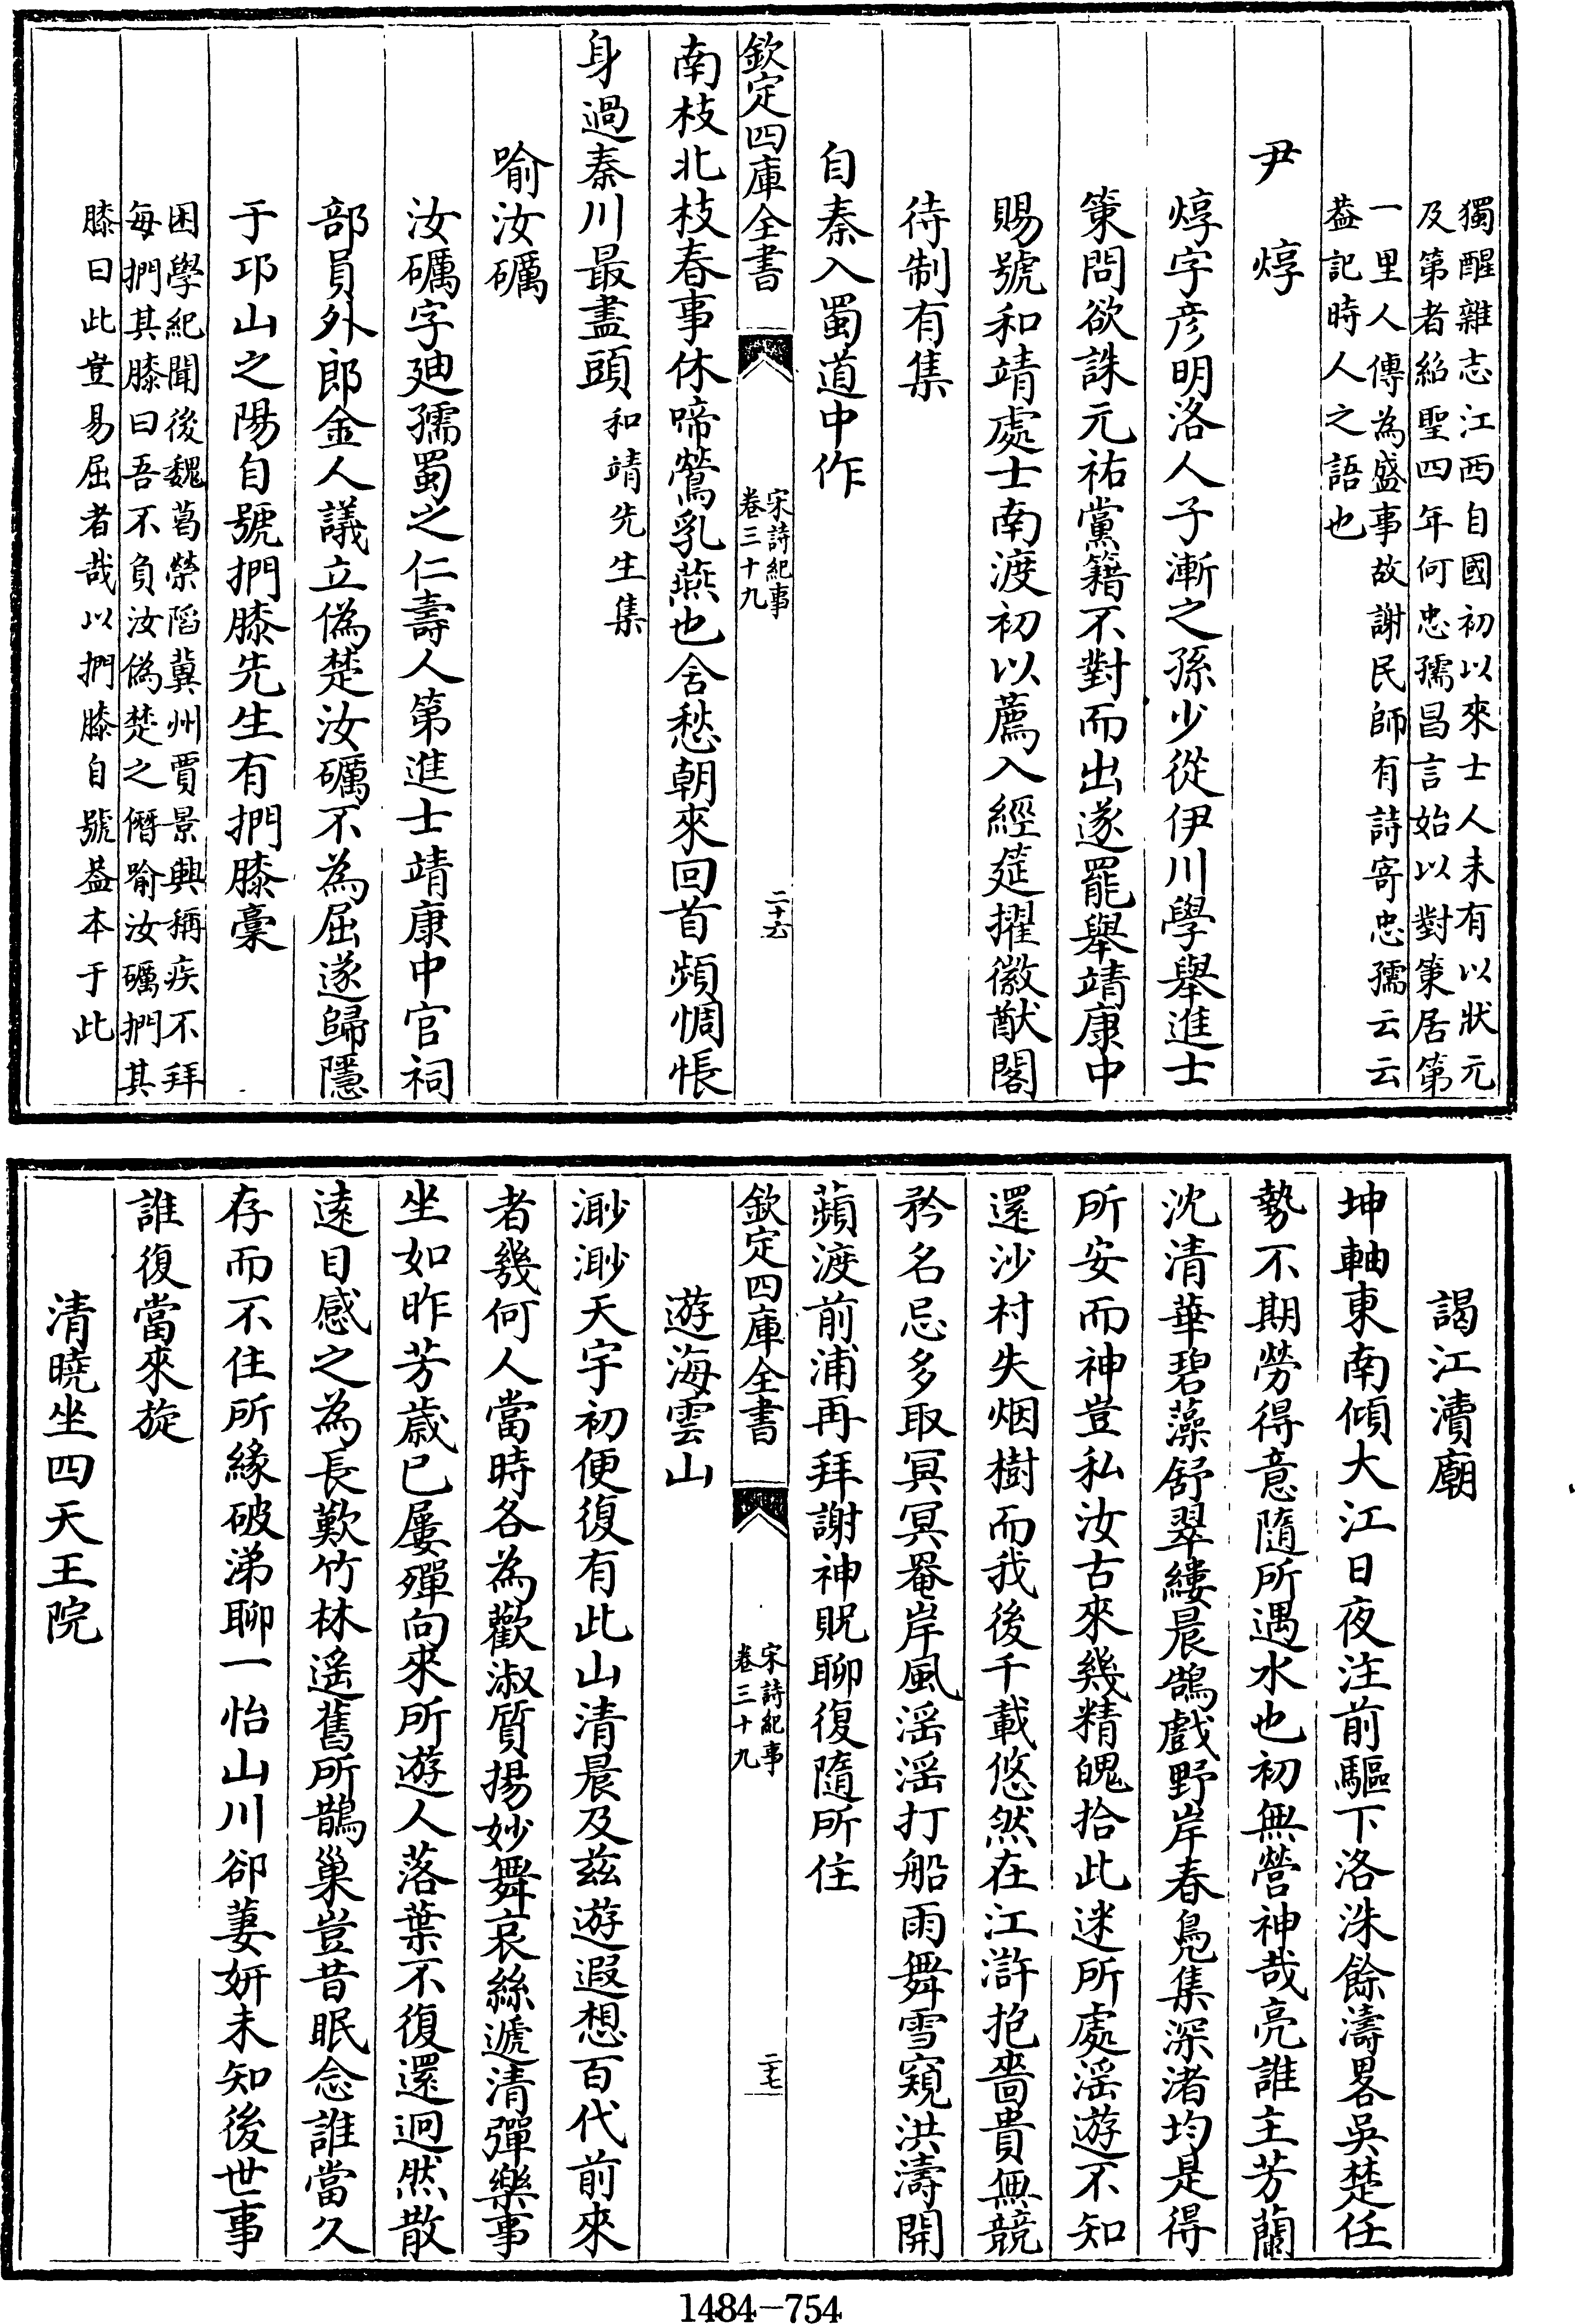 獨醒雜志江西自國初以來士人未有以狀元
及第者紹聖四年何忠孺昌言始以對策居第
一里人傳為盛事故謝民師有詩寄忠孺云云
葢記時人之語也
尹焞
焞字彦明洛人子漸之孫少從伊川學舉進士
策問欲誅元祐黨籍不對而出遂罷舉靖康中
賜號和靖處士南渡初以薦入經筵擢徽猷閣
待制有集
自秦入蜀道中作
欽定四庫全書
宋詩紀事
卷三十九
二十六
南枝北枝春事休啼鶯乳燕也含愁朝來回首頻惆悵
身過秦川最盡頭和靖先生集
喻汝礪
汝礪字廸孺蜀之仁壽人第進士靖康中官祠
部員外郎金人議立偽楚汝礪不為屈遂歸隱
于邛山之陽自號捫膝先生有捫膝稾
困學紀聞後魏葛榮䧟冀州賈景興稱疾不拜
每捫其膝曰吾不負汝偽楚之僭喻汝礪捫其
膝曰此豈易屈者哉以捫膝自號葢本于此
謁江瀆廟
坤軸東南傾大江日夜注前驅下洛洙餘濤畧吳楚任
勢不期勞得意隨所遇水也初無營神哉亮誰主芳蘭
沈清華碧藻舒翠縷晨鵠戲野岸春鳧集深渚均是得
所安而神豈私汝古來幾精魄拾此迷所處滛遊不知
還沙村失烟樹而我後千載悠然在江滸抱嗇貴無競
矜名忌多取冥冥罨岸風滛滛打船雨舞雪窺洪濤開
蘋渡前浦再拜謝神貺聊復隨所住
欽定四庫全書
宋詩紀事
卷三十九
二十七
遊海雲山
渺渺天宇初便復有此山清晨及兹遊遐想百代前來
者幾何人當時各為歡淑質揚妙舞哀絲遞清彈樂事
坐如昨芳歲已屢殫向來所遊人落葉不復還迥然散
遠目感之為長歎竹林遥舊所鵲巢豈昔眠念誰當久
存而不住所緣破涕聊一怡山川卻萋妍未知後世事
誰復當來旋
清曉坐四天王院
1484-754